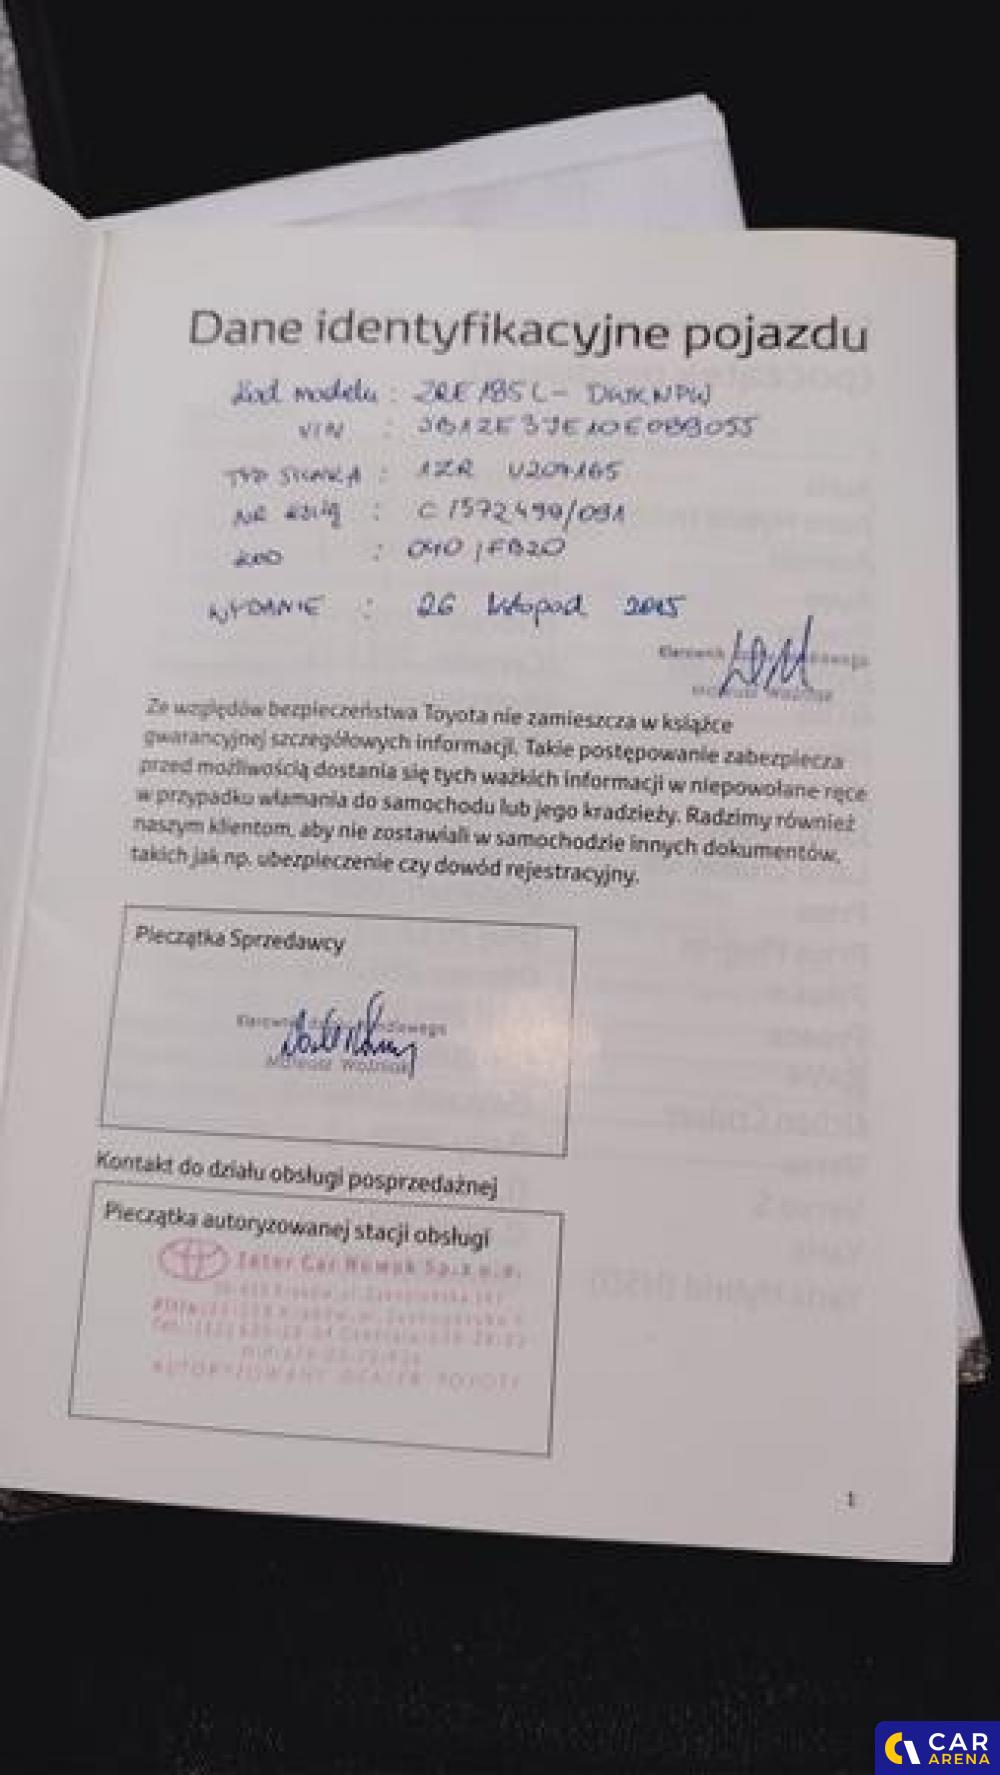 Dane identyfikacyjne pojazdu
Kod modelu : ZRE185L - DWKNPW
VIN :
TYP SILNIKA : 1ZR U204165
NR :
KOD : 040 / FB20
WYDANIE : 26 listopad 2015
Kierownik
Mateusz Woźniak
Ze względów bezpieczeństwa Toyota nie zamieszcza w książce
gwarancyjnej szczegółowych informacji. Takie postępowanie zabezpiecza
przed możliwością dostania się tych ważkich informacji w niepowołane ręce
w przypadku włamania do samochodu lub jego kradzieży. Radzimy również
naszym klientom, aby nie zostawiali w samochodzie innych dokumentów,
takich jak np. ubezpieczenie czy dowód rejestracyjny.
Pieczątka Sprzedawcy
Kierownik
Mateusz Woźniak
Kontakt do działu obsługi posprzedażnej
Pieczątka autoryzowanej stacji obsługi
Inter Car Nowak Sp. z o.o.
AUTORYZOWANY DEALER TOYOTY
1
CAR
ARENA